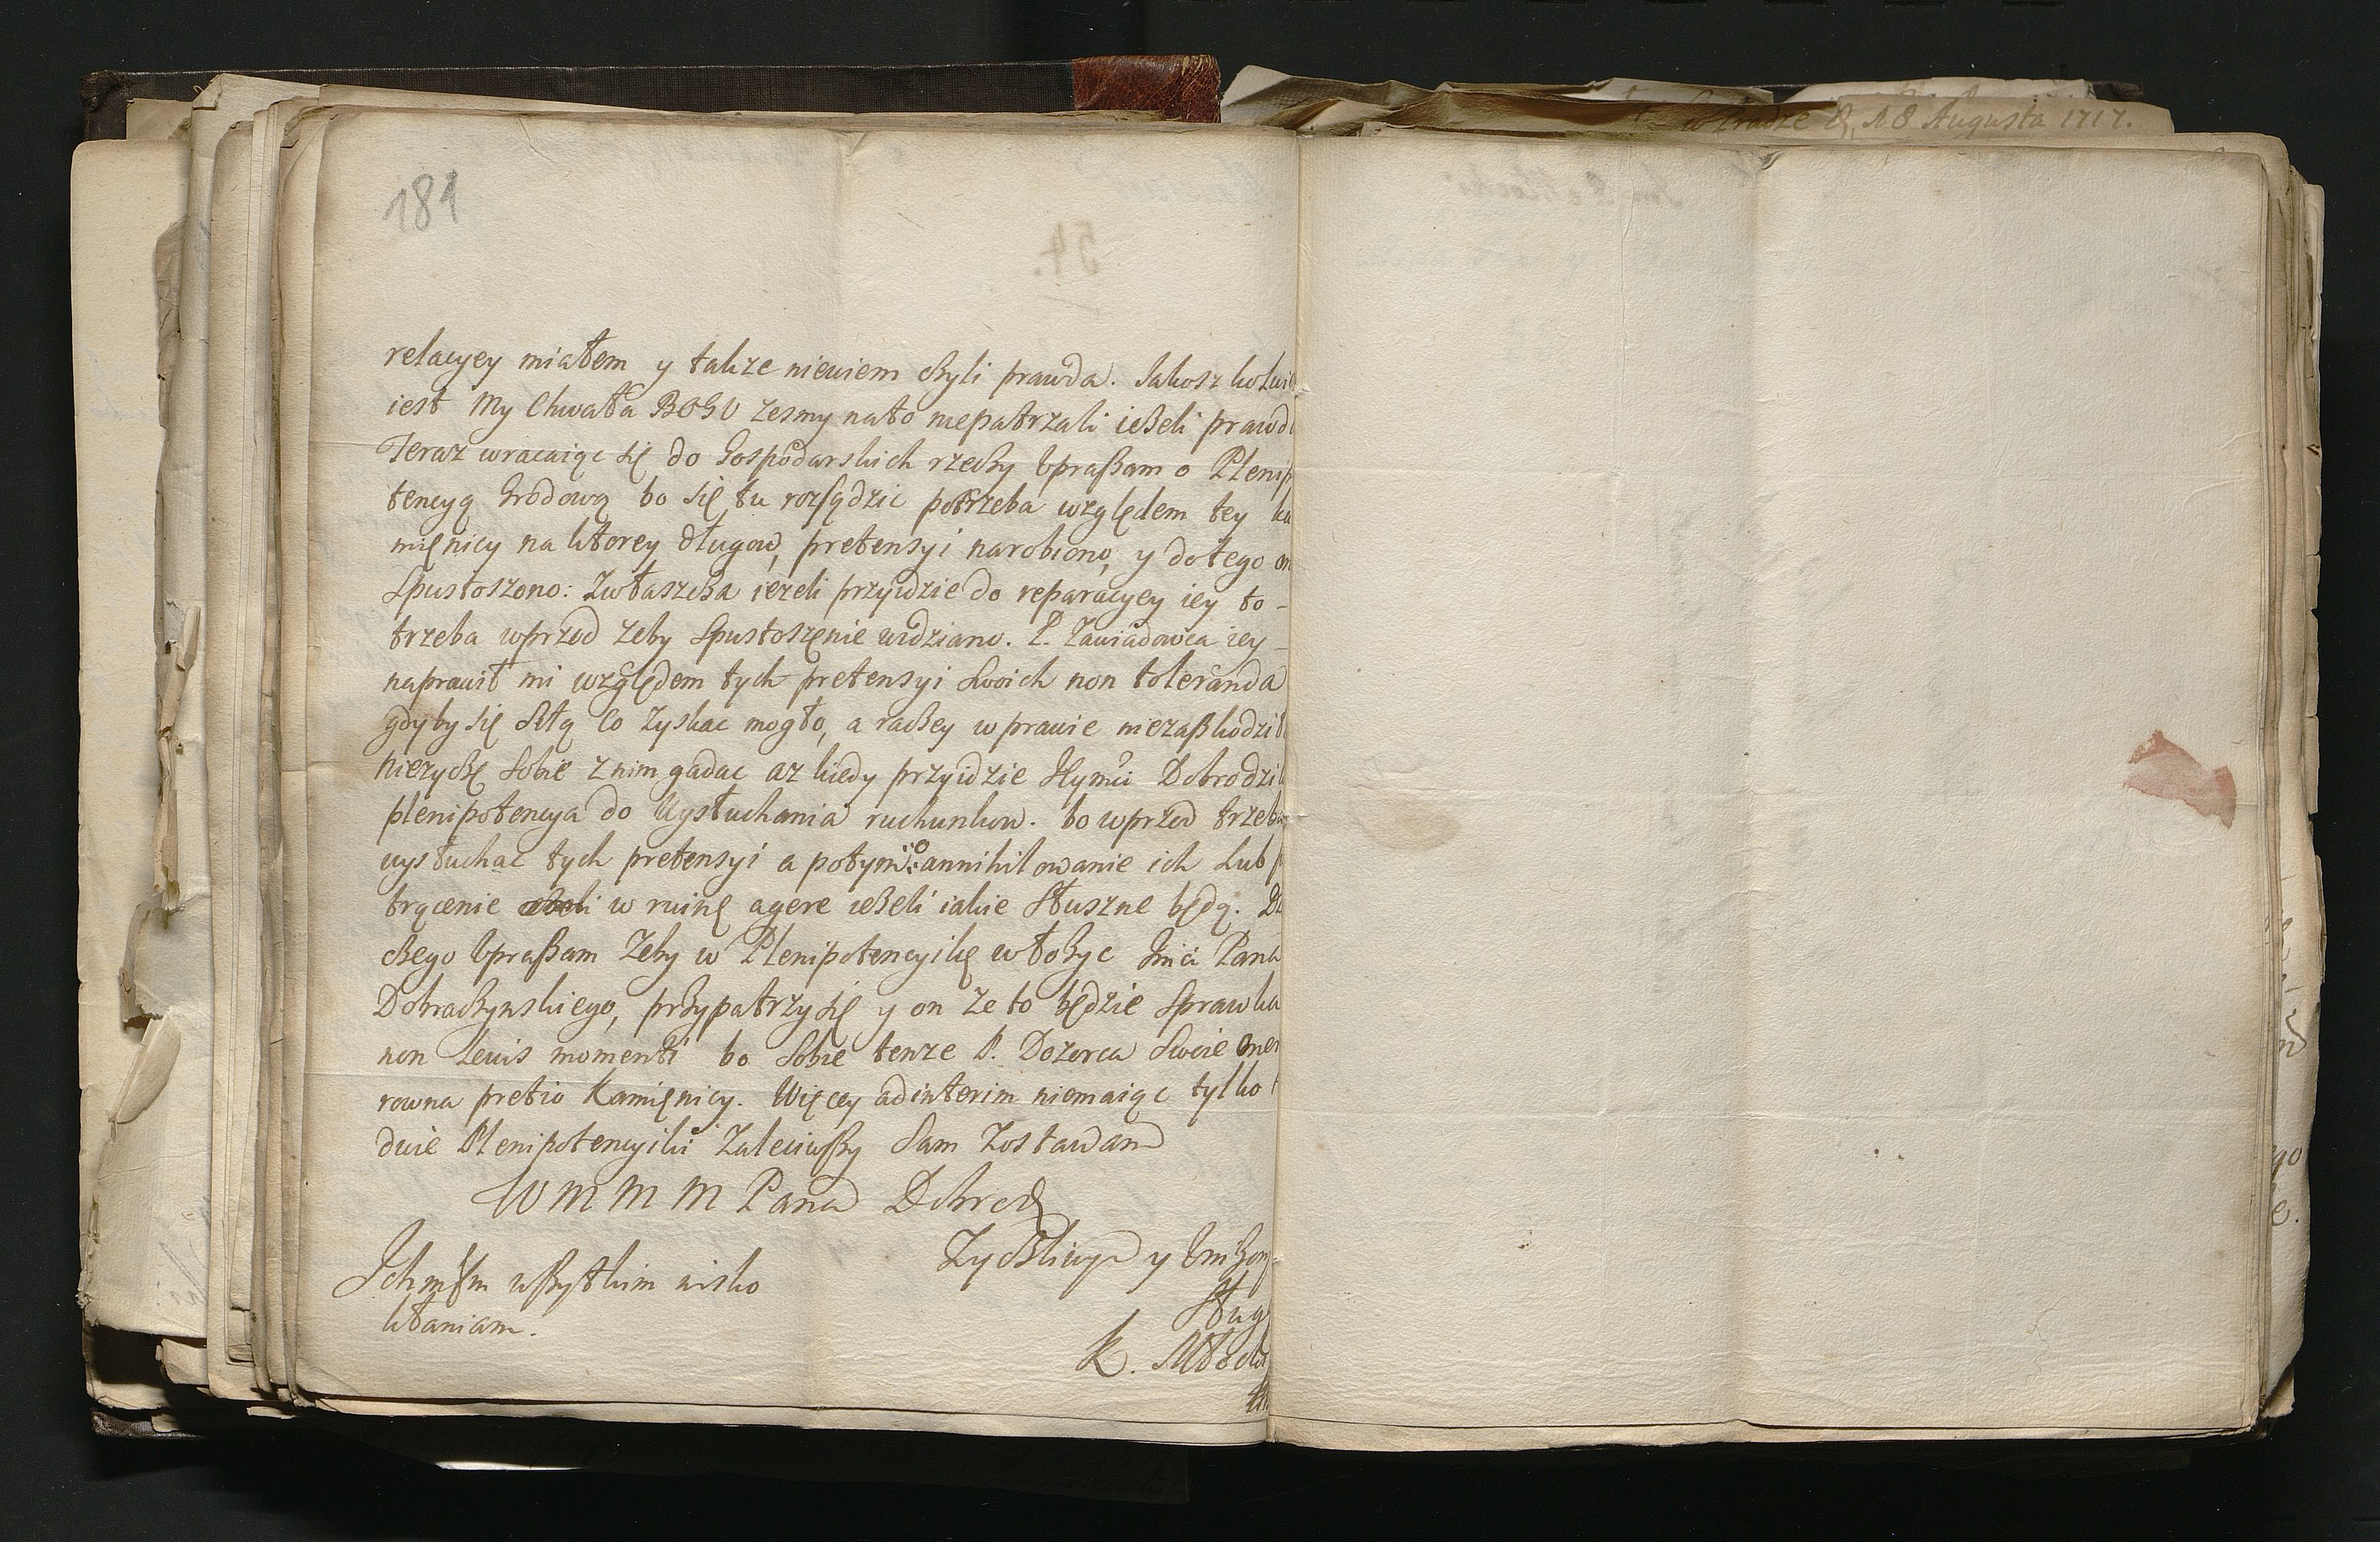 w Gradze D. 18 Augusta 1717.
181
relacyey miałem y takze niewiem cżyli prawda. Jakosz kolwie
iest My Chwała BOGU zesmy nato niepatrzali ieżeli prawd
Teraz wracaiąc się do Gospodarskich rzeczy Upraßam o Plenip
tencyą Grodową bo się tu rozsądzic potrzeba względem tey ka
mięnicy na ktorey długow, pretensyi narobiono, y dotego
Spustoszono: Zwłaszcża iezeli przyidzie do reparacyey iey to-
trzeba wprzod zeby Spustoszęnie widziano. P. Zawiadowca iey-
naprawił mi względem tych pretensyi Swoich non toleranda
gdyby się Siłą Co zyskac mogło, a racżey w prawie niezaßkodzi
nieżyczę Sobie z nim gadac az kiedy przyidzie JIymci Dobrodzi
plenipotencya do Wysłuchania ruchunkow. bo wprzod trzeba
wysłuchac tych pretensyi a potym o annihilowanie ich Lub
trącenie w ruinę agere ieżeli iakie Słuszne będą.
cżego Upraßam Zeby w Plenipotencyikę włożyc Jmci Pana
Dobraczynskiego, przypatrzy się y on ze to będzie Sprawka
non Levis momenti bo Sobie tenze P. Dozorca Swoie
rowna pretio Kamięnicy. Więcey adinterim niemaiąc tylko
dwie Plenipotencyiki Zaleciwßy Sam Zostawam
W M M M Pana Dobrod
Zycżliwym y Uniżon
Sług
K.
Ichmsm wßytkim nisko
kłaniam.
54.